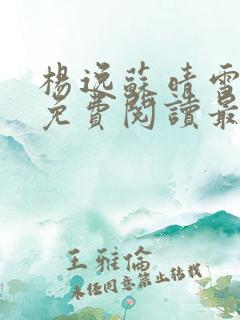 楊逸蘇晴雪
免費閱讀最
王雅倫
未經同意禁止轉載